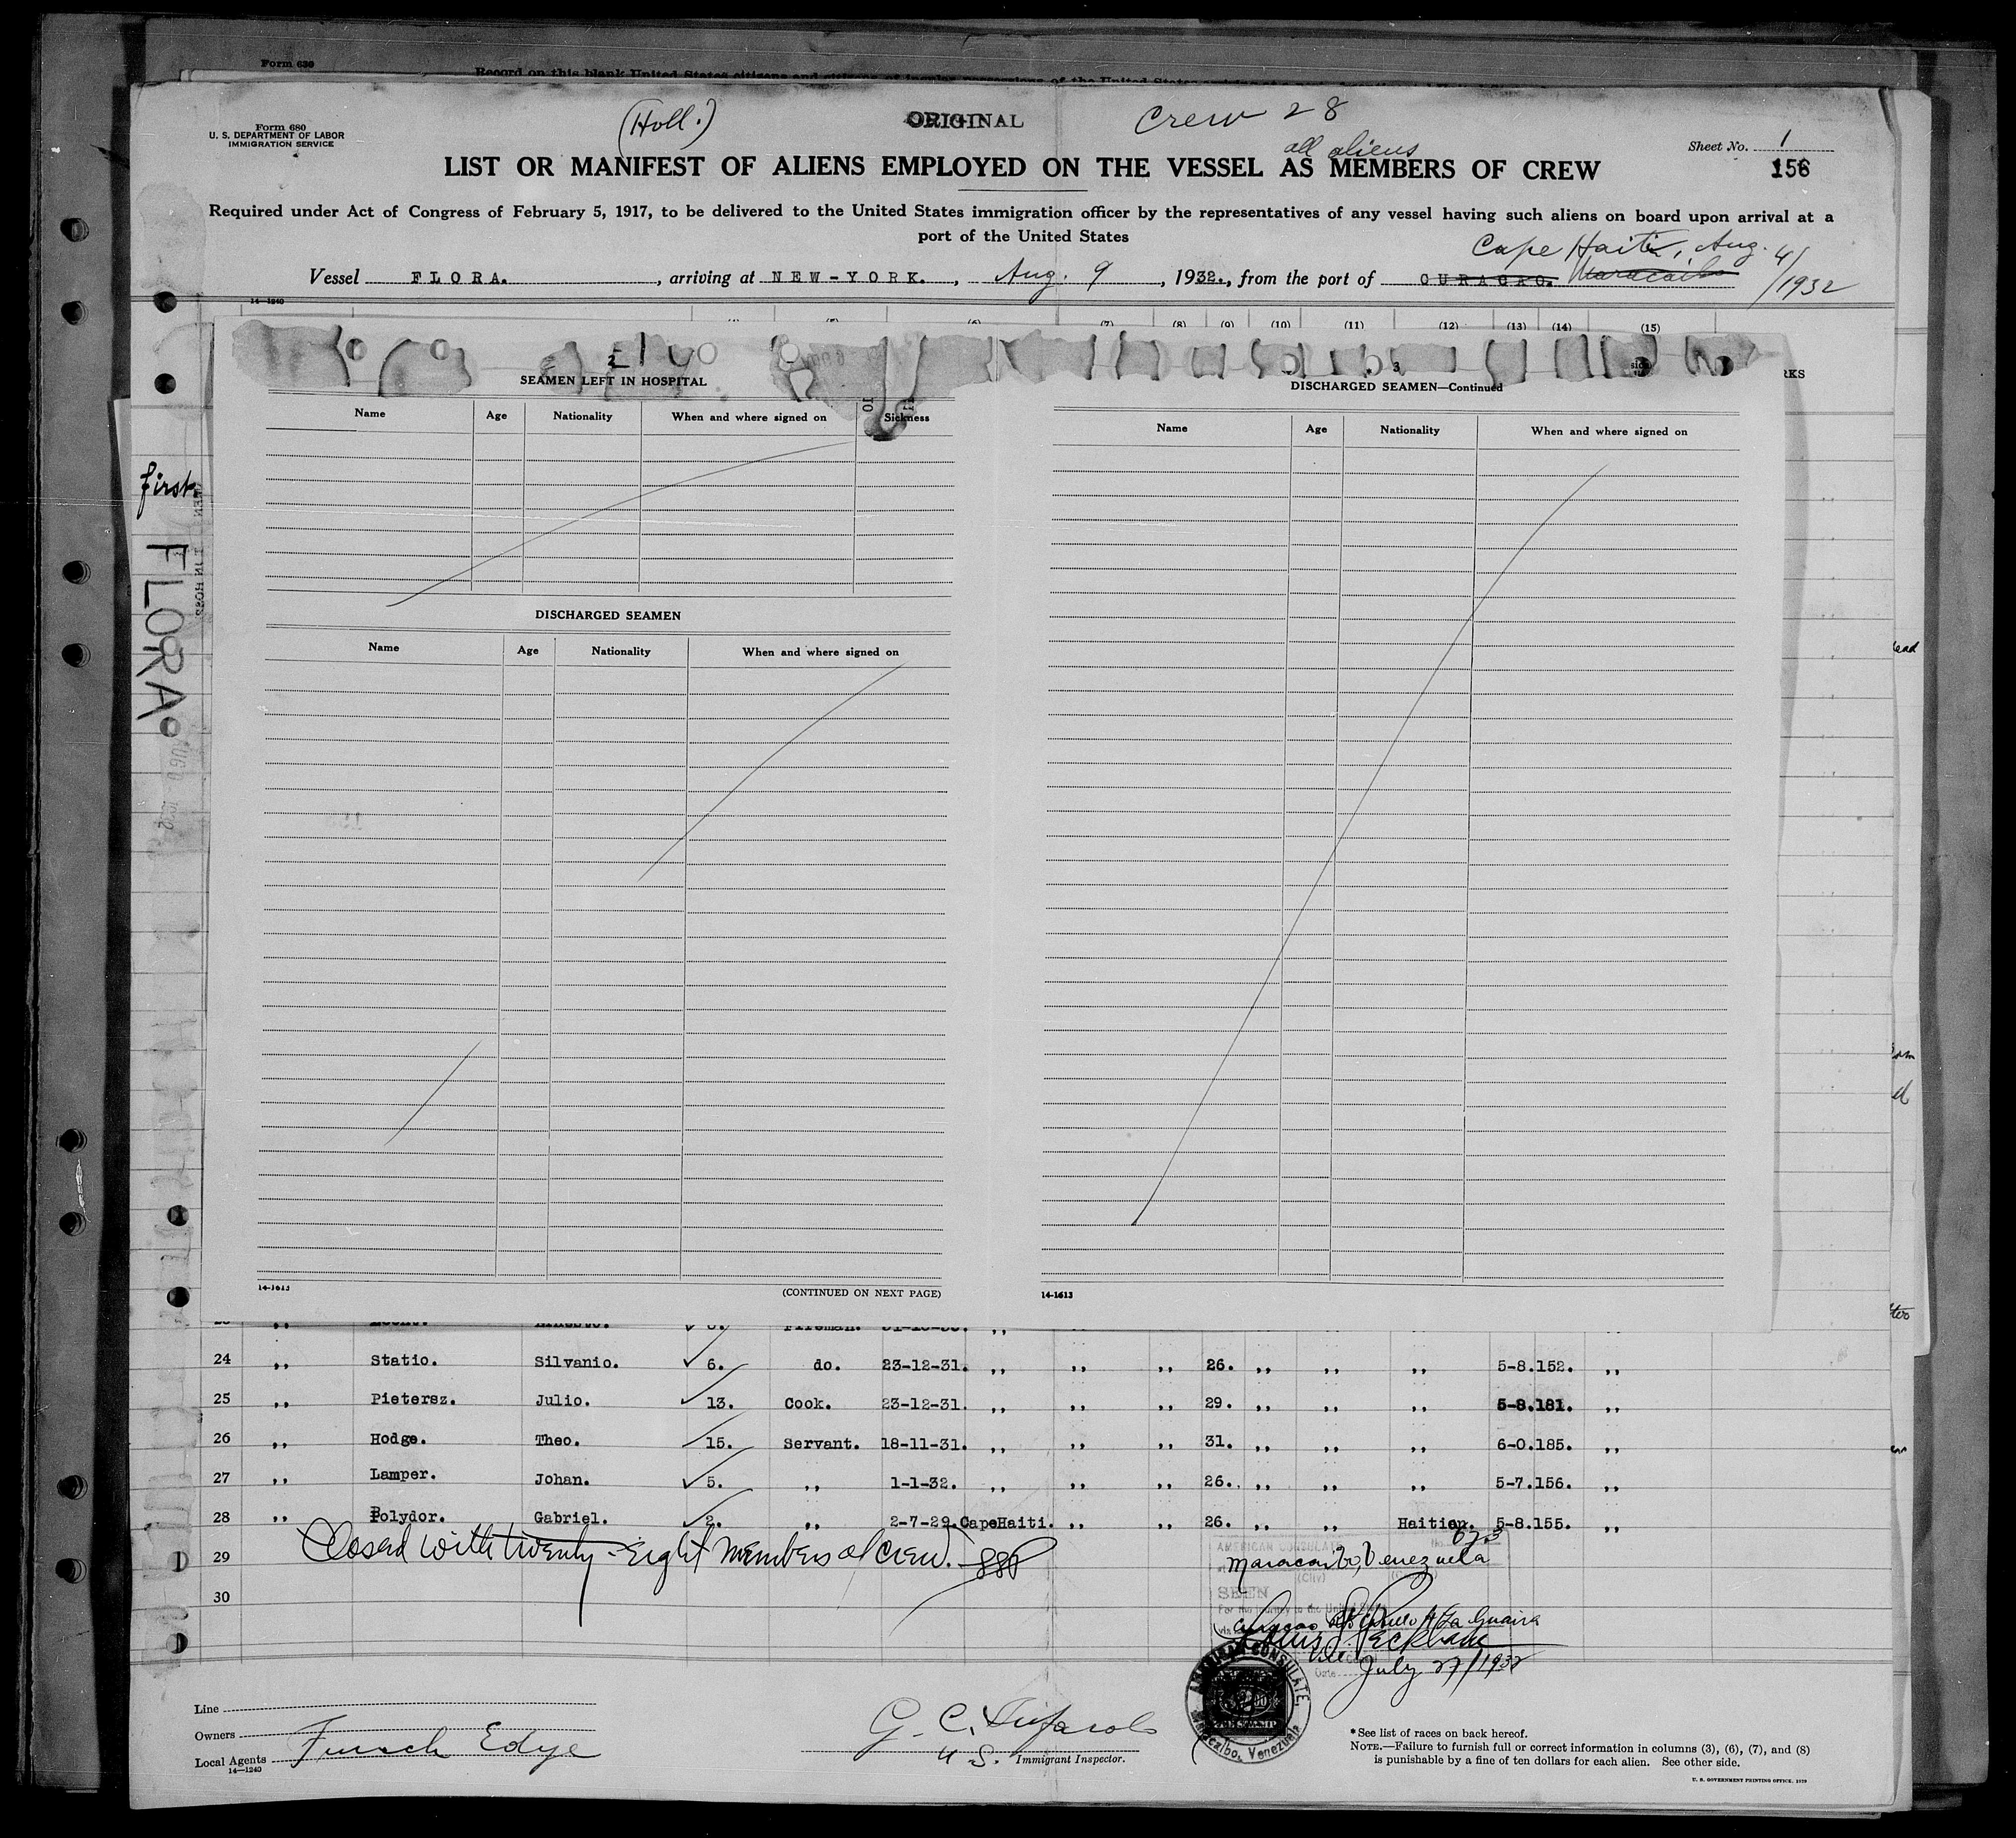 Form 630
Record on this blank United States citizens and citizens of insular possessions of the United States
Form 680
U. S. DEPARTMENT OF LABOR
IMMIGRATION SERVICE
(Holl.)
ORIGINAL
Crew 28
all aliens
Sheet No. 1
156
LIST OR MANIFEST OF ALIENS EMPLOYED ON THE VESSEL AS MEMBERS OF CREW
Required under Act of Congress of February 5, 1917, to be delivered to the United States immigration officer by the representatives of any vessel having such aliens on board upon arrival at a
port of the United States
Cape Haiti, Aug. 4/1932
Vessel FLORA., arriving at NEW-YORK., Aug. 9, 1932., from the port of CURACAO. Maracaibo
14—1240
(7) (8) (9) (10) (11) (12) (13) (14) (15)
2
SEAMEN LEFT IN HOSPITAL
Name Age Nationality When and where signed on Sickness
DISCHARGED SEAMEN
Name Age Nationality When and where signed on
14-1613
(CONTINUED ON NEXT PAGE)
3
DISCHARGED SEAMEN—Continued
Name Age Nationality When and where signed on
14-1613
first
FLORA
24 ,, Statio. Silvanio. ✓ 6. do. 23-12-31. ,, ,, ,, 26. ,, ,, ,, 5-8. 152. ,,
25 ,, Pietersz. Julio. ✓ 13. Cook. 23-12-31. ,, ,, ,, 29. ,, ,, ,, 5-8. 181. ,,
26 ,, Hodge. Theo. ✓ 15. Servant. 18-11-31. ,, ,, ,, 31. ,, ,, ,, 6-0. 185. ,,
27 ,, Lamper. Johan. ✓ 5. ,, 1-1-32. ,, ,, ,, 26. ,, ,, ,, 5-7. 156. ,,
28 ,, Polydor. Gabriel. ✓ 2. ,, 2-7-29. CapeHaiti. ,, ,, 26. ,, ,, Haitian. 5-8. 155. ,,
29
30
Closed with twenty-eight members of crew.
AMERICAN CONSULATE
Maracaibo, Venezuela
(City)
SEEN
For the journey to the United States
Curacao Pto Cabello & La Guaira
July 27/1932
AMERICAN CONSULATE,
Maracaibo, Venezuela
Line
Owners
Local Agents Funch Edye
14—1240
G. C.
U. S. Immigrant Inspector.
*See list of races on back hereof.
NOTE.—Failure to furnish full or correct information in columns (3), (6), (7), and (8)
is punishable by a fine of ten dollars for each alien. See other side.
U. S. GOVERNMENT PRINTING OFFICE. 1929